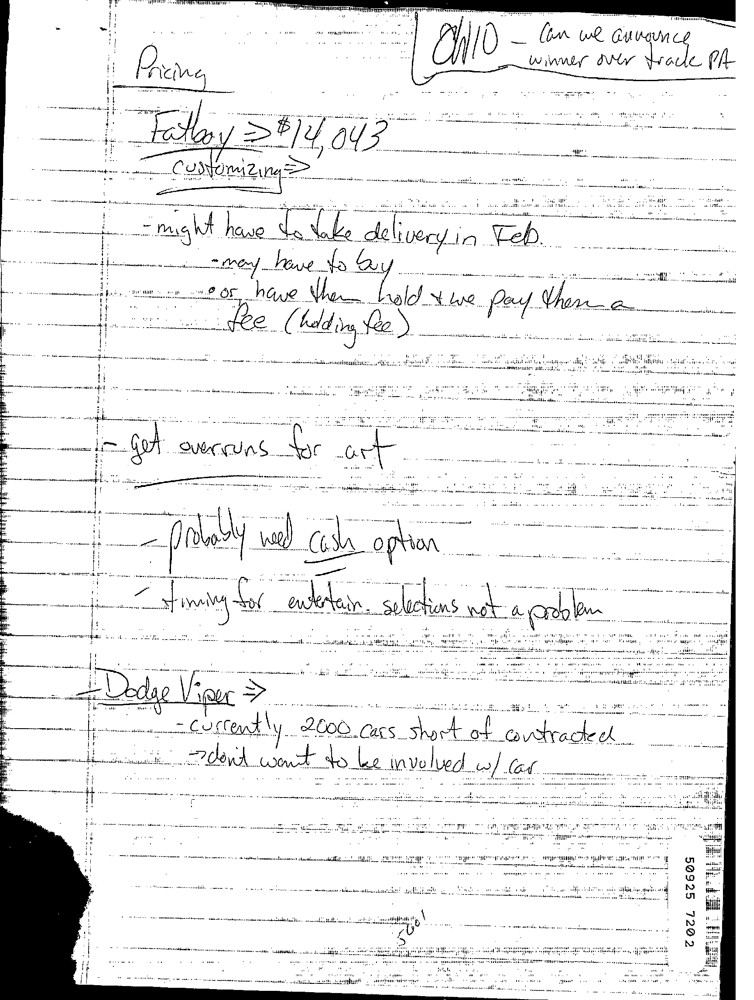 OHIO - Can we announce
winner over track PA
Pricing
Fatboy => $14,043
customizing =>
- might have to take delivery in Feb.
- may have to buy
• or have them hold & we pay them a
fee (holding fee)
- get overruns for art
- probably need cash option
- timing for entertain. selections not a problem
- Dodge Viper =>
- currently 2000 cars short of contracted
-> don't want to be involved w/ car
50925 7202